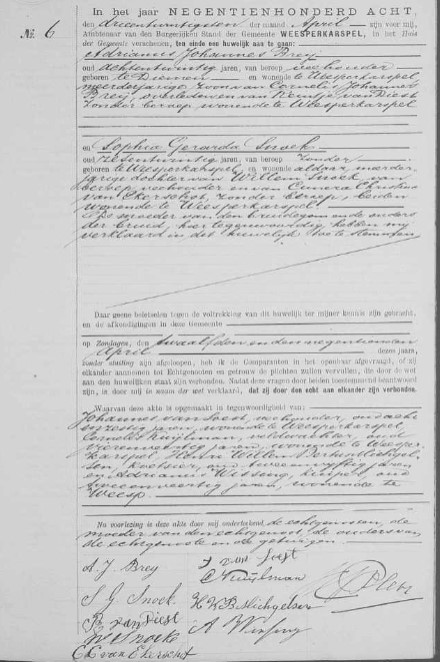 No. 6
In het jaar NEGENTIENHONDERD ACHT,
den drieentwintigsten der maand April zijn voor mij,
Ambtenaar van den Burgerlijken Stand der Gemeente WEESPERKARSPEL, in het Huis
der Gemeente verschenen, ten einde een huwelijk aan te gaan:
Adrianus Johannes Brey
oud achtentwintig jaren, van beroep veehouder
geboren te Diemen en wonende te Weesperkarspel,
meerderjarige zoon van Cornelis Johannes
Brey, overleden en van Diest
zonder beroep, wonende te Weesperkarspel
en Sophia Gerarda Snoek
oud zesentwintig jaren, van beroep zonder
geboren te Weesperkarspel en wonende aldaar, meerder-
jarige dochter van Willem Snoek, van
beroep veehouder en van Christina
van Ekerschot, zonder beroep, beiden
wonende te Weesperkarspel
De moeder van den bruidegom en de ouders
der bruid, hier tegenwoordig, hebben mij
verklaard in dit huwelijk toe te stemmen
Daar geene beletselen tegen de voltrekking van dit huwelijk ter mijner kennis zijn gebracht,
en de afkondigingen in deze Gemeente
op Zondagen, den twaalfden en den negentienden
April dezes jaars,
zonder stuiting zijn afgeloopen, heb ik de Comparanten in het openbaar afgevraagd, of zij
elkander aannemen tot Echtgenooten en getrouw de plichten zullen vervullen, die door de wet
aan den huwelijken staat zijn verbonden. Nadat deze vragen door beiden toestemmend beantwoord
waren, is door mij in naam der wet verklaard, dat zij door den echt aan elkander zijn verbonden.
Waarvan deze akte is opgemaakt in tegenwoordigheid van:
Johannes van Diest, veehouder, oud acht
en zestig jaren, wonende te Weesperkarspel,
Cornelis Kuijlman, veldwachter, oud
vierenveertig jaren, wonende te Weesper-
karspel, Willem
koetsier, oud tweeenvijftig jaren
en Adrianus oud
tweeenveertig jaren, wonende te
Weesp.
Na voorlezing is deze akte door mij onderteekend, de echtgenooten, de
moeder van den echtgenoot, de ouders van
de echtgenoote en de getuigen
A. J. Brey
J van Diest
C Kuijlman
S G Snoek
van Diest
W Snoek
van Ekerschot